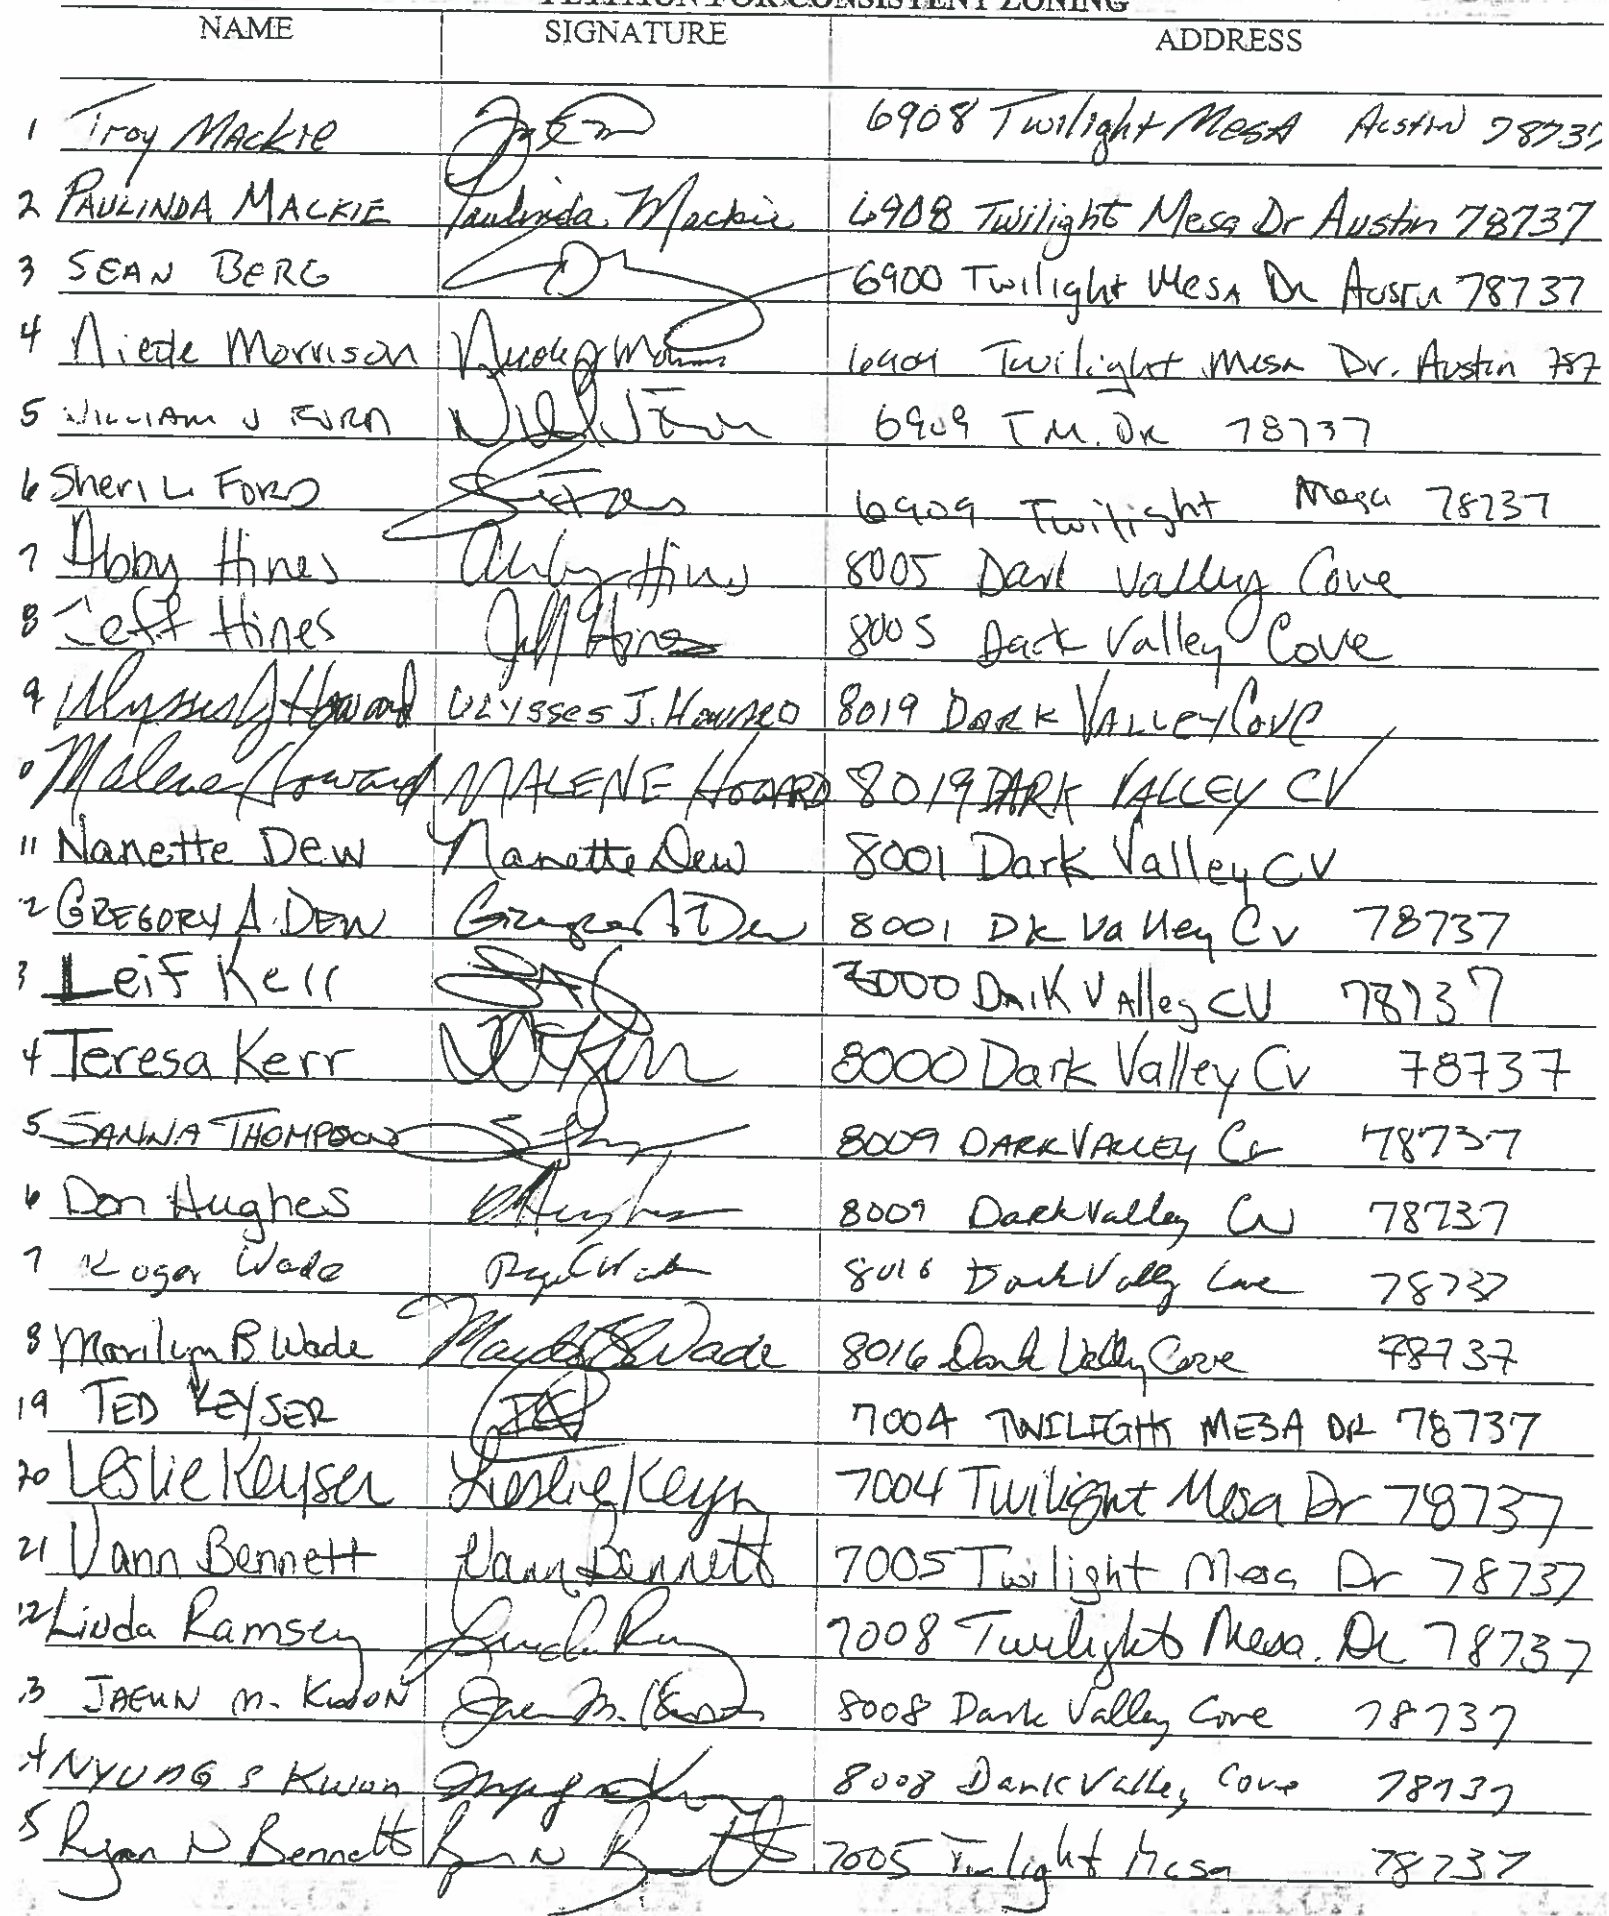 PETITION FOR CONSISTENT ZONING
NAME SIGNATURE ADDRESS
1 Troy Mackie 6908 Twilight Mesa Austin 78737
2 PAULINDA MACKIE Paulinda Mackie 6908 Twilight Mesa Dr Austin 78737
3 SEAN BERG 6900 Twilight Mesa Dr Austin 78737
4 Nicole Morrison 6904 Twilight Mesa Dr. Austin 787
5 WILLIAM J FORD 6909 T.M. DR 78737
6 Sheri L. FORD 6909 Twilight Mesa 78737
7 Abby Hines Abby Hines 8005 Dark Valley Cove
8 Jeff Hines Jeff Hines 8005 Dark Valley Cove
9 Ulysses J Howard ULYSSES J. HOWARD 8019 DARK VALLEY COVE
0 Malene Howard MALENE HOWARD 8019 DARK VALLEY CV
11 Nanette Dew Nanette Dew 8001 Dark Valley CV
2 GREGORY A. DEW Gregory A Dew 8001 Dk Valley Cv 78737
3 Leif Kerr 8000 Dark Valley CV 78737
4 Teresa Kerr 8000 Dark Valley Cv 78737
5 SANNA THOMPSON 8009 DARK VALLEY Cv 78737
6 Don Hughes D Hughes 8009 Dark Valley Cv 78737
7 Roger Wade 8016 Dark Valley Cove 78737
8 Marilyn B Wade Marilyn B Wade 8016 Dark Valley Cove 78737
19 TED KEYSER 7004 TWILIGHT MESA DR 78737
20 Leslie Keyser Leslie Keyser 7004 Twilight Mesa Dr 78737
21 Vann Bennett Vann Bennett 7005 Twilight Mesa Dr 78737
22 Linda Ramsey 7008 Twilight Mesa Dr 78737
3 JAEUN M. KWON 8008 Dark Valley Cove 78737
4 NYUNG S KWON 8008 Dark Valley Cove 78737
5 Ryan N Bennett Ryan N Bennett 7005 Twilight Mesa 78737